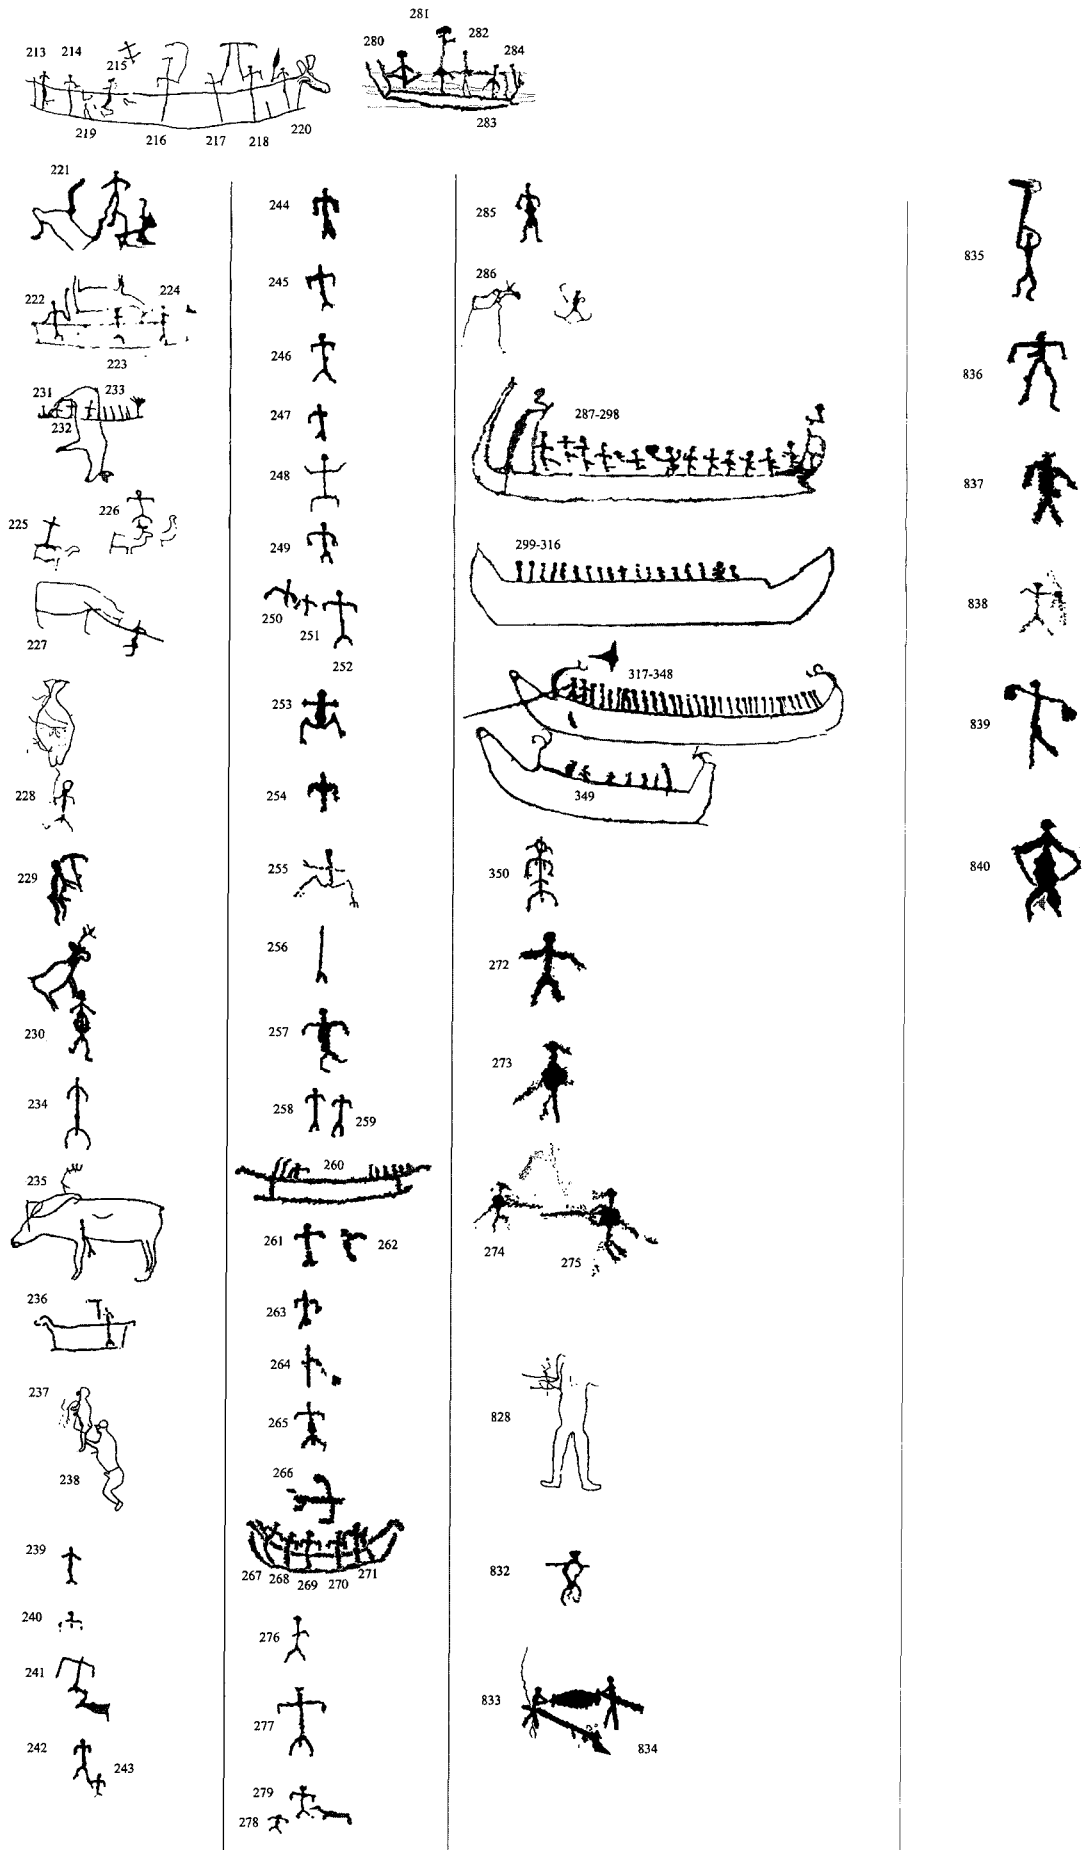 281
213 214 280 282
215 284
219 216 217 218 220 283
221
222 224
223
231 233
232
225 226
227
228
229
230
234
235
236
237
238
239
240
241
242 243
244
245
246
247
248
249
250 251 252
253
254
255
256
257
258 259
260
261 262
263
264
265
266
267 268 269 270 271
276
277
279
278
285
286
287-298
299-316
317-348
349
350
272
273
274 275
828
832
833
834
835
836
837
838
839
840